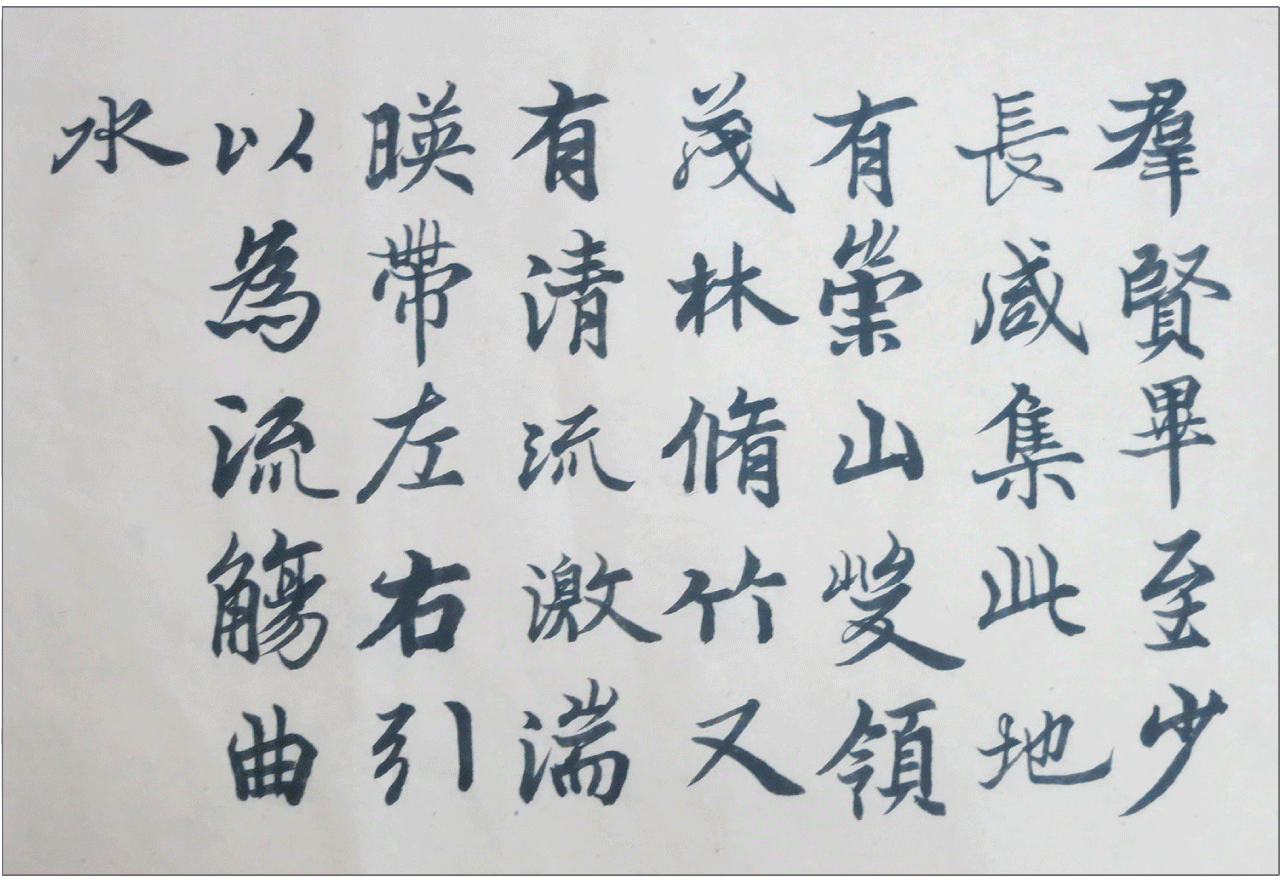 羣賢畢至少
長咸集此地
有崇山峻領
茂林脩竹又
有清流激湍
暎帶左右引
以為流觴曲
水